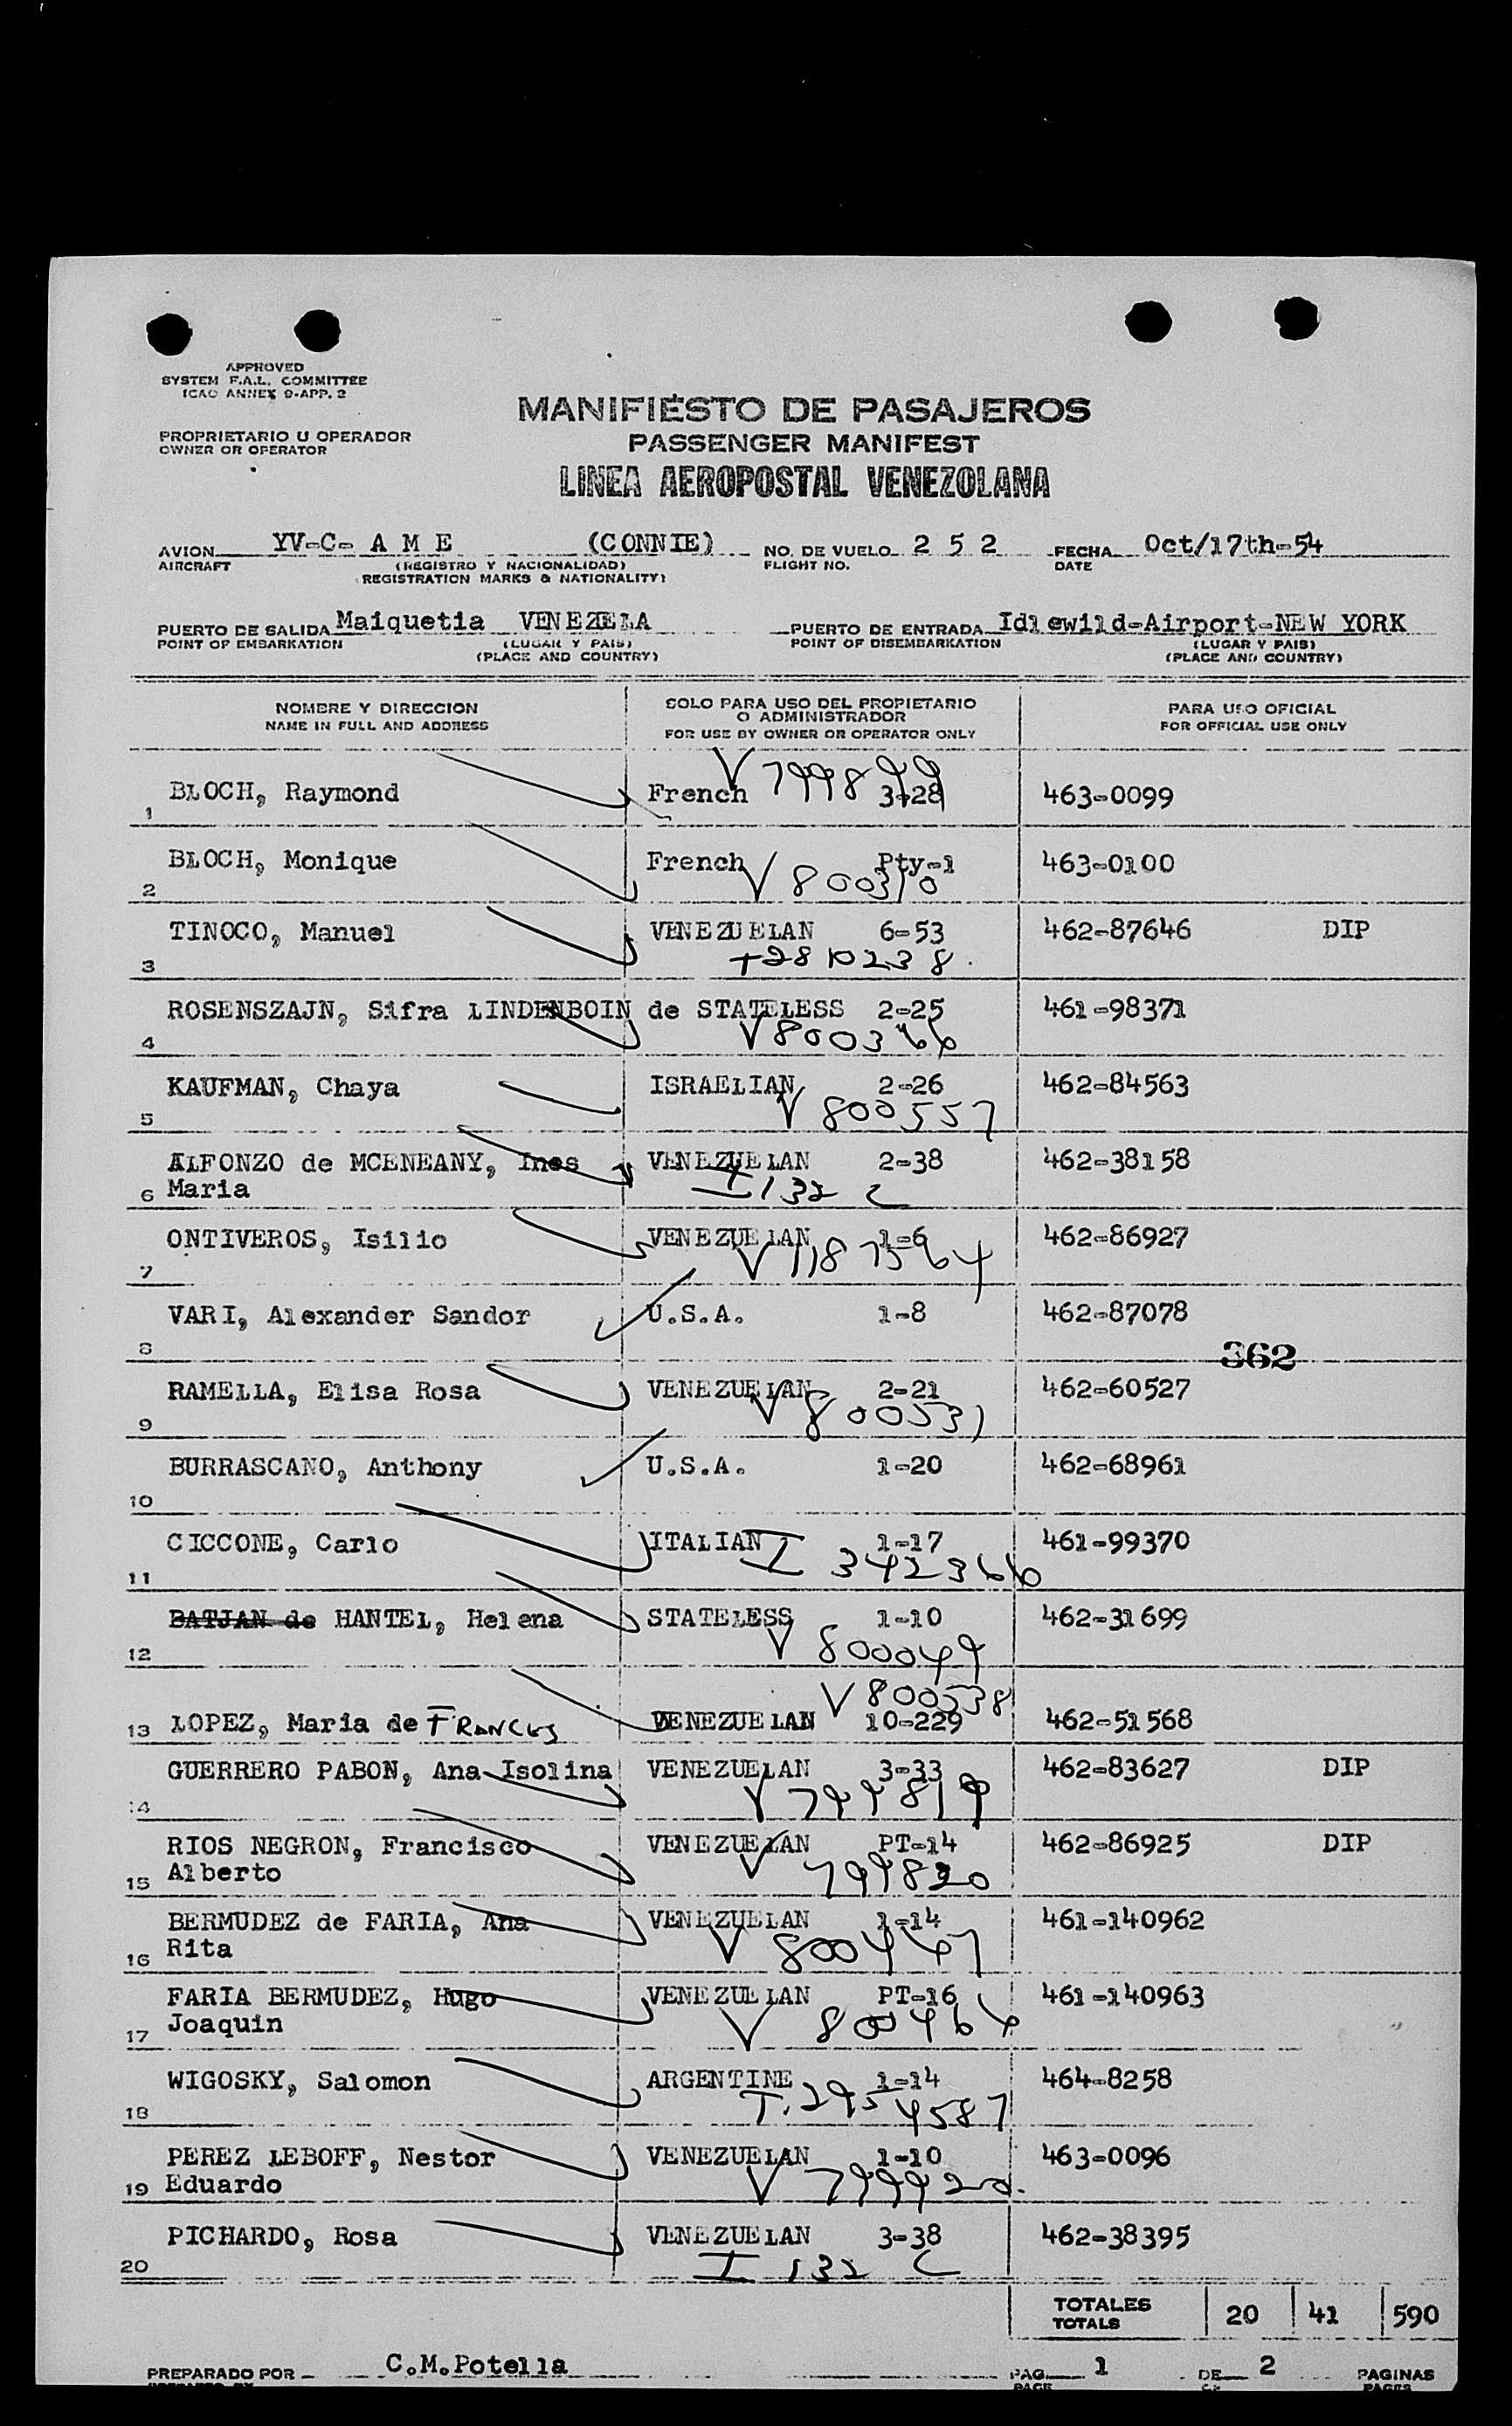 APPROVED
SYSTEM F.A.L. COMMITTEE
ICAO ANNEX 9-APP. 2
MANIFIESTO DE PASAJEROS
PROPRIETARIO U OPERADOR
OWNER OR OPERATOR
PASSENGER MANIFEST
LINEA AEROPOSTAL VENEZOLANA
AVION YV-C- A M E (CONNIE) NO. DE VUELO 2 5 2 FECHA Oct/17th-54
AIRCRAFT (REGISTRO Y NACIONALIDAD) FLIGHT NO. DATE
REGISTRATION MARKS & NATIONALITY)
PUERTO DE SALIDA Maiquetia VENEZELA PUERTO DE ENTRADA Idlewild-Airport-NEW YORK
POINT OF EMBARKATION (LUGAR Y PAIS) POINT OF DISEMBARKATION (LUGAR Y PAIS)
(PLACE AND COUNTRY) (PLACE AND COUNTRY)
NOMBRE Y DIRECCION SOLO PARA USO DEL PROPIETARIO PARA USO OFICIAL
O ADMINISTRADOR
NAME IN FULL AND ADDRESS FOR USE BY OWNER OR OPERATOR ONLY FOR OFFICIAL USE ONLY
V 799899
1 BLOCH, Raymond French 3-28 463-0099
BLOCH, Monique French Pty-1 463-0100
2 V 800310
TINOCO, Manuel VENEZUELAN 6-53 462-87646 DIP
3 +2810238.
ROSENSZAJN, Sifra LINDENBOIN de STATELESS 2-25 461-98371
4 V800366
KAUFMAN, Chaya ISRAELIAN 2-26 462-84563
5 V 800557
ALFONZO de MCENEANY, Ines VENEZUELAN 2-38 462-38158
6 Maria I 132 C
ONTIVEROS, Isilio VENEZUELAN 1-6 462-86927
7 V 1187564
VARI, Alexander Sandor U.S.A. 1-8 462-87078
8 362
RAMELLA, Elisa Rosa VENEZUELAN 2-21 462-60527
9 V 800531
BURRASCANO, Anthony U.S.A. 1-20 462-68961
10
CICCONE, Carlo ITALIAN 1-17 461-99370
11 I 342366
BATJAN de HANTEL, Helena STATELESS 1-10 462-31699
12 V 800049
V 800538
13 LOPEZ, Maria de FRANCES VENEZUELAN 10-229 462-51568
GUERRERO PABON, Ana Isolina VENEZUELAN 3-33 462-83627 DIP
14 V 799819
RIOS NEGRON, Francisco VENEZUELAN PT-14 462-86925 DIP
15 Alberto V 799820
BERMUDEZ de FARIA, Ana VENEZUELAN 1-14 461-140962
16 Rita V 800467
FARIA BERMUDEZ, Hugo VENEZUELAN PT-16 461-140963
17 Joaquin V 800466
WIGOSKY, Salomon ARGENTINE 1-14 464-8258
18 T. 2954587
PEREZ LEBOFF, Nestor VENEZUELAN 1-10 463-0096
19 Eduardo V 799920.
PICHARDO, Rosa VENEZUELAN 3-38 462-38395
20 I 132 C
TOTALES 20 41 590
TOTALS
PREPARADO POR C.M.Potella PAG. 1 DE 2 PAGINAS
PAGE PAGES